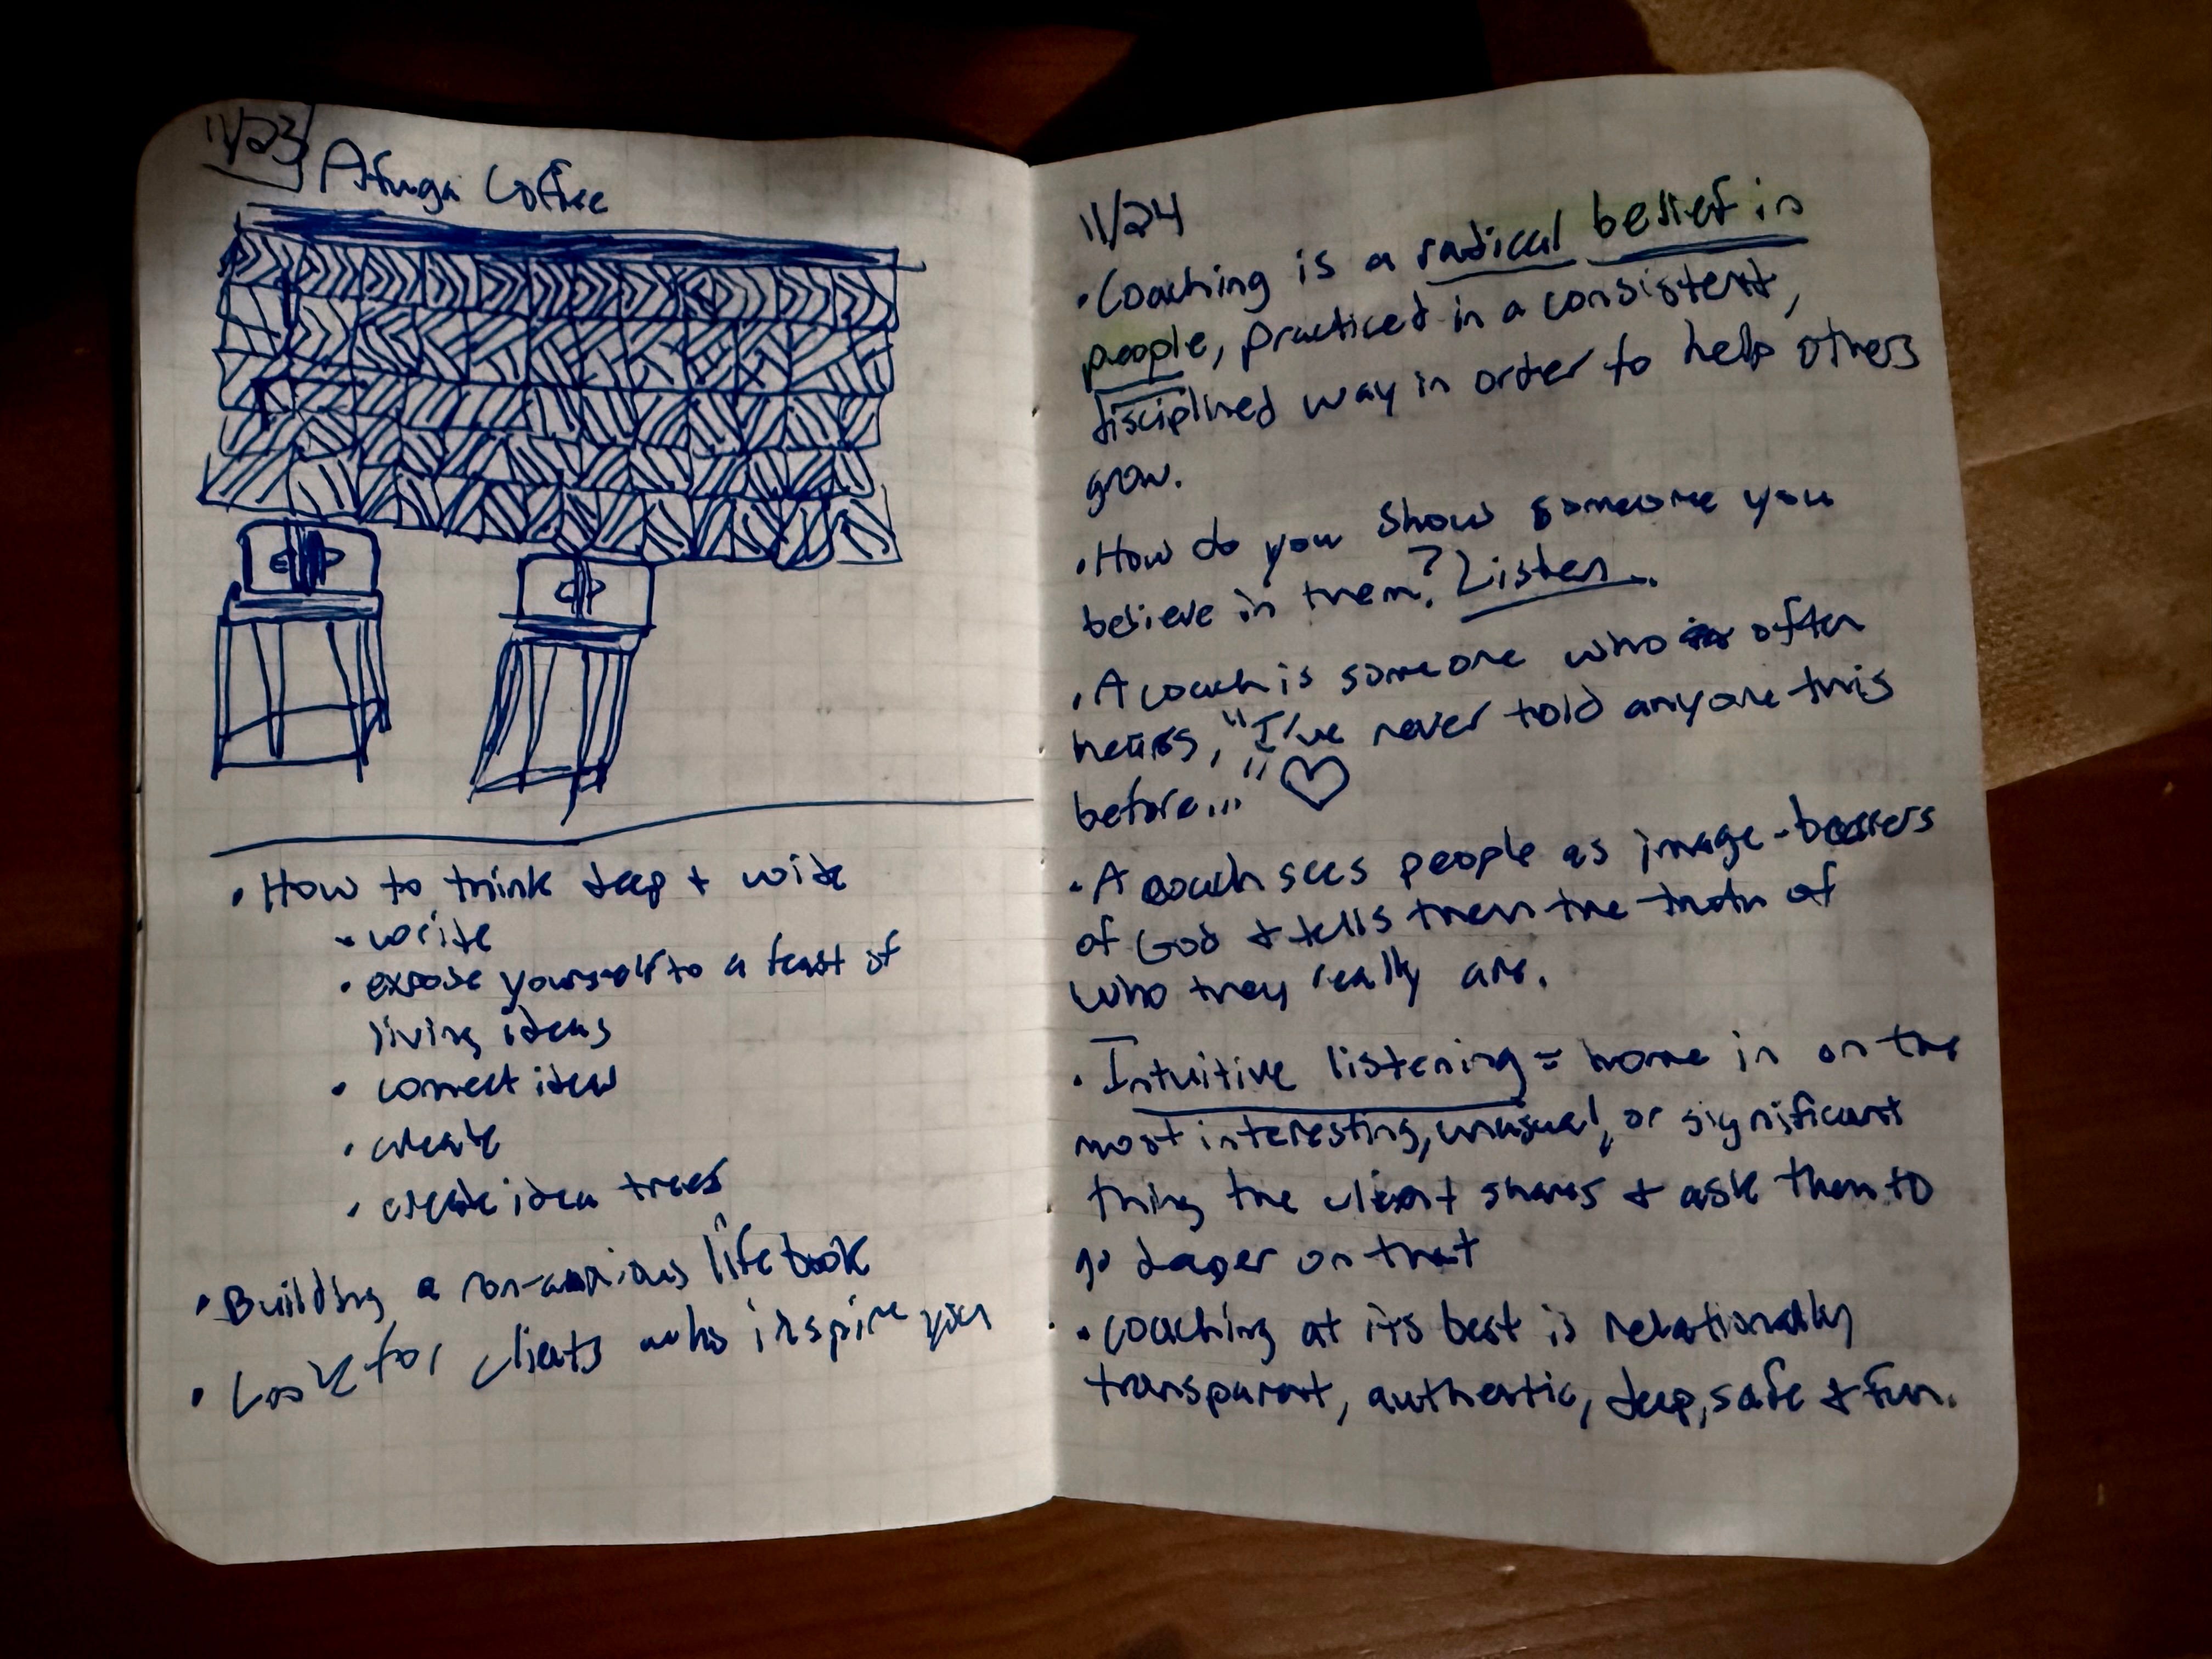 11/23
Afuga Coffee
• How to think deep + wide
• write
• expose yourself to a feast of
living ideas
• connect ideas
• create
• create idea trees
• Building a non-anxious life book
• Look for clients who inspire you
11/24
• Coaching is a radical belief in
people, practiced in a consistent,
disciplined way in order to help others
grow.
• How do you show someone you
believe in them? Listen.
• A coach is someone who often
hears, "I've never told anyone this
before..." ♡
• A coach sees people as image-bearers
of God + tells them the truth of
who they really are.
• Intuitive listening = home in on the
most interesting, unusual, or significant
thing the client shares + ask them to
go deeper on that
• coaching at its best is relationally
transparent, authentic, deep, safe + fun.